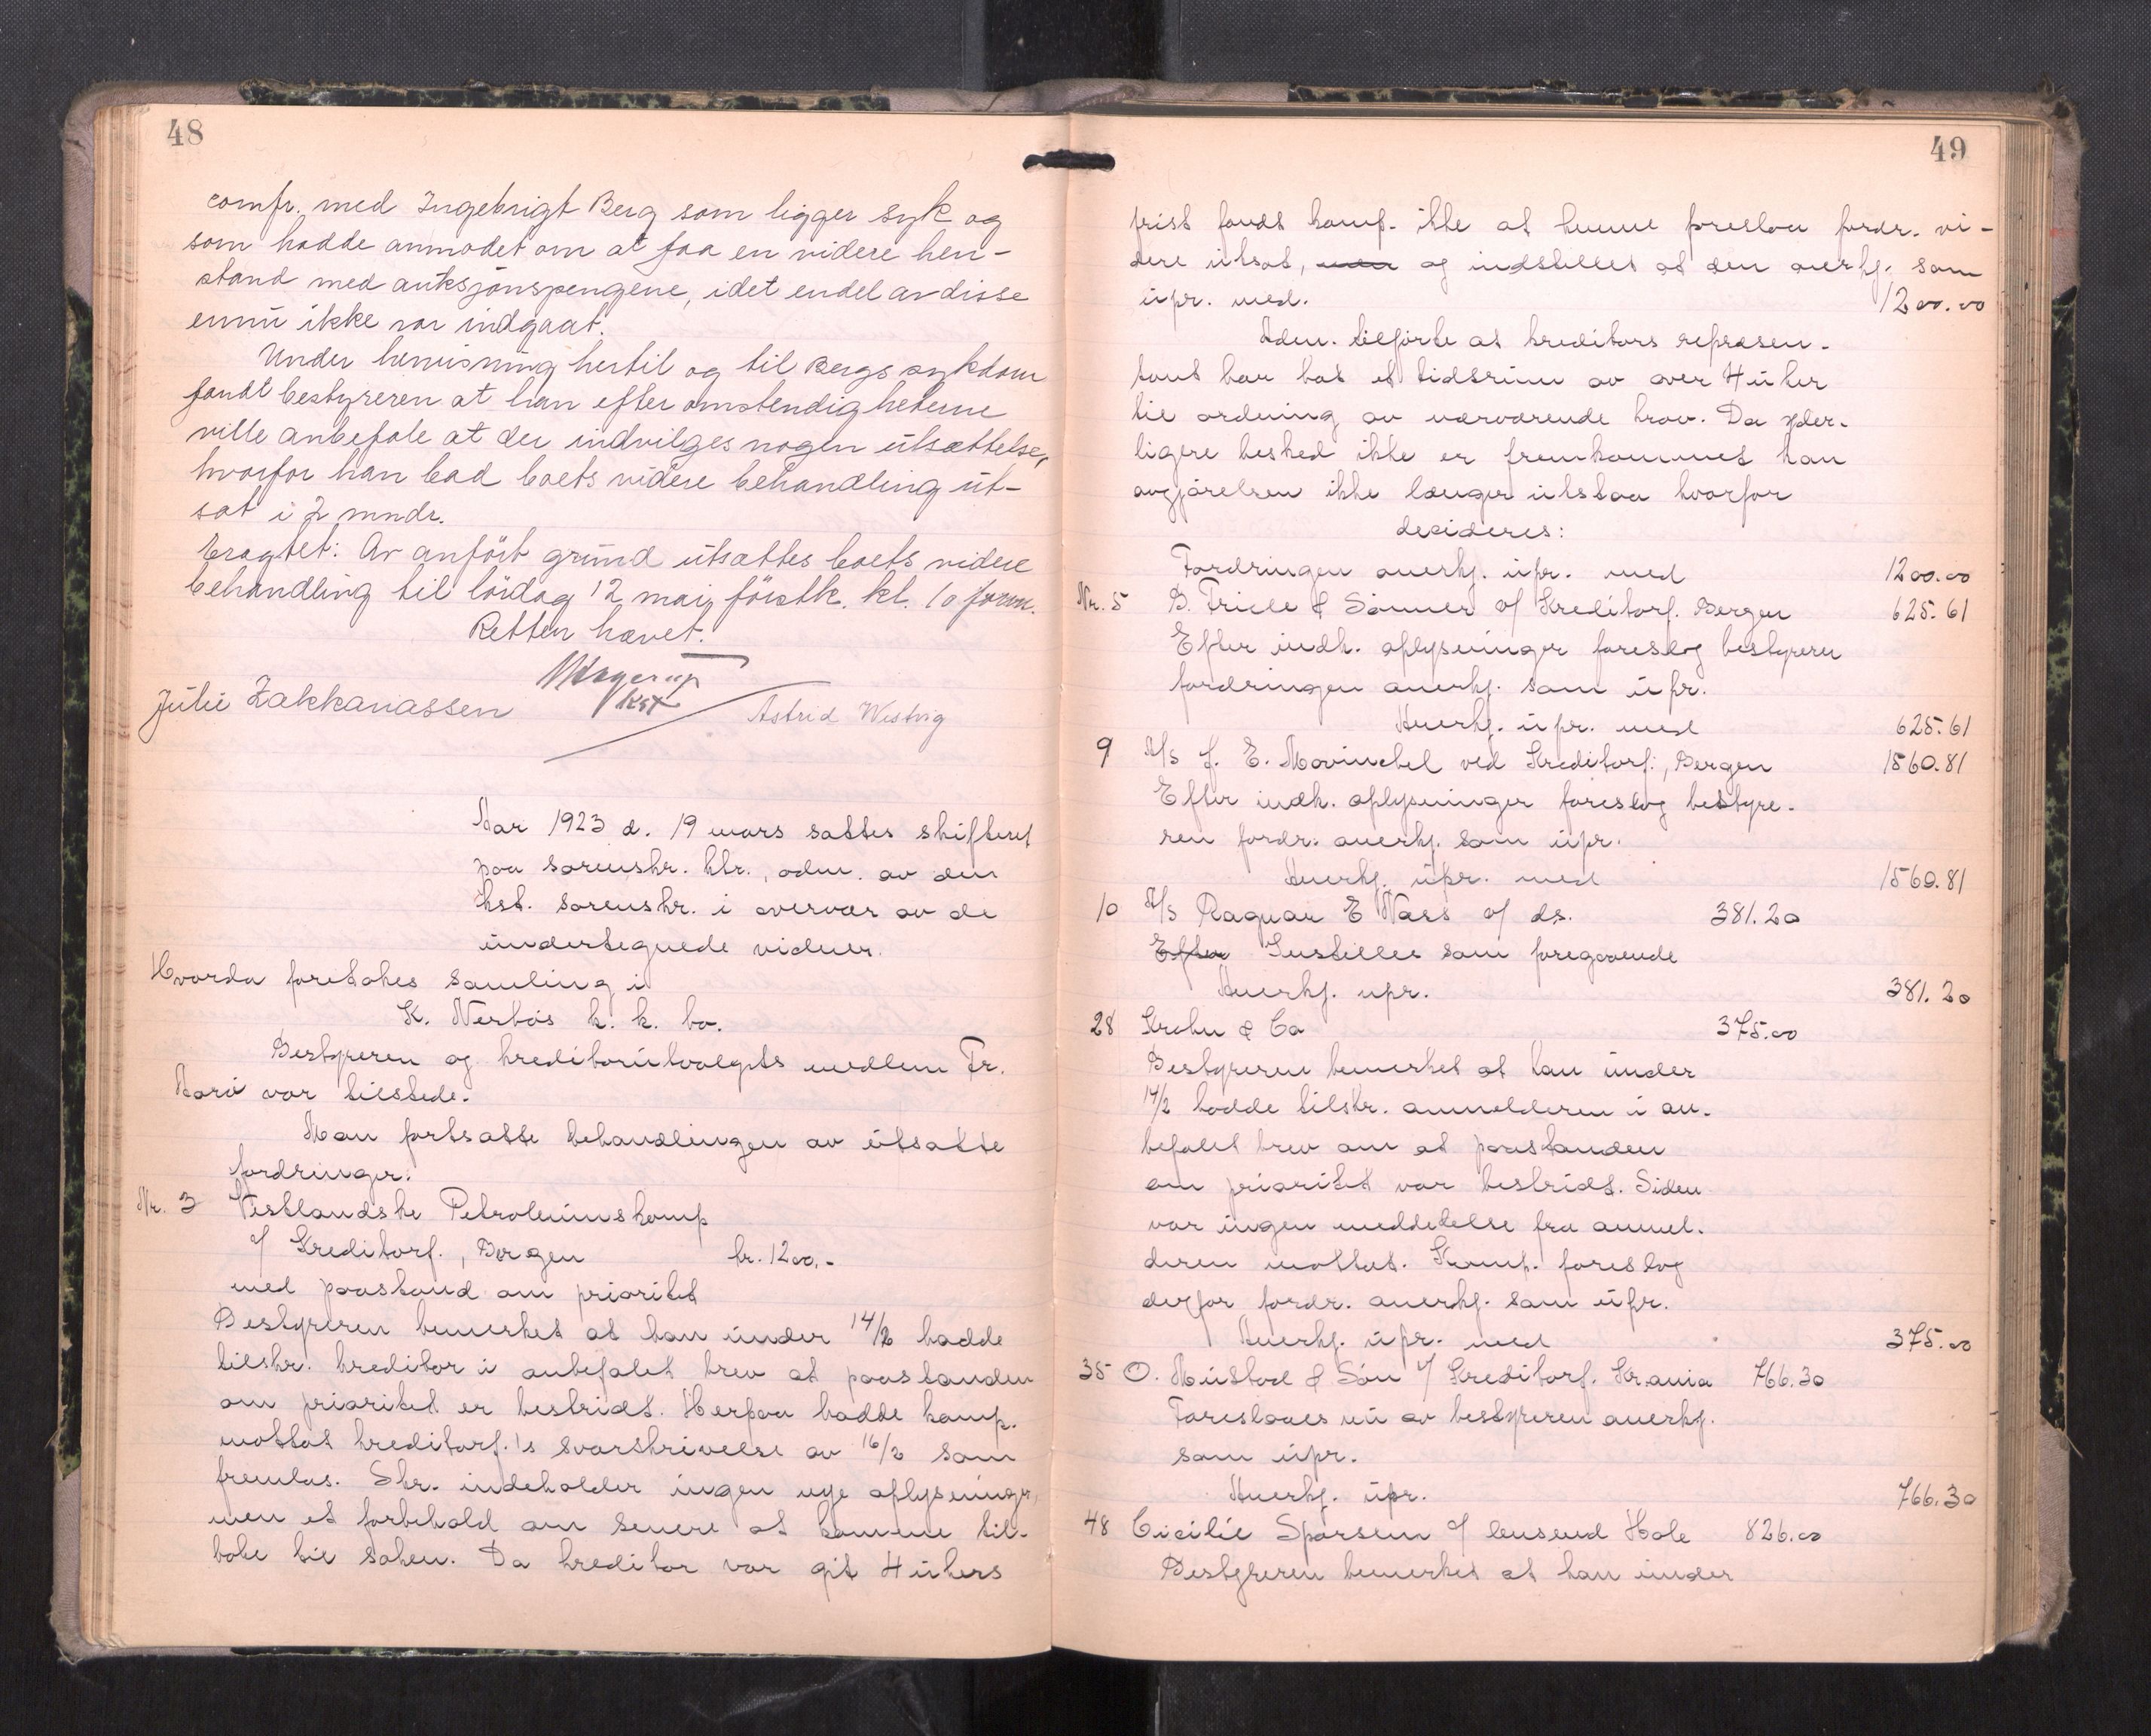 48
comfr. med Ingebrigt Berg som ligger syk og
som hadde anmodet om at faa en videre hen-
stand med auksjonspengene, idet endel av disse
ennu ikke var indgaat.
Under henvisning hertil og til Bergs sykdom
fandt bestyreren at han efter omstendigheterne
ville anbefale at der indvilges nogen utsættelse,
hvorfor han bad boets videre behandling ut-
sat i 2 mndr.
Eragtet: Av anført grund utsættes boets videre
behandling til lördag 12 mai förstk. kl. 10 form.
Retten hævet.
Hagerup
kst
Julie Zakkariassen
Astrid Westvig
Aar 1923 d. 19 mars sattes skifteret
paa sorenskr. ktr., adm. av den
kst. sorenskr. i overvær av de
undertegnede vidner.
Hvorda foretokes samling i
K. Nerbös k. k. bo.
Bestyreren og kreditorutvalgets medlem Fr.
var tilstede.
Man fortsatte behandlingen av utsatte
fordringer.
Nr. 3 Vestlandske Petroleumskomp
v/ Kreditorf., Bergen kr. 1200,-
med paastand om prioritet
Bestyreren bemerket at han under 14/2 hadde
tilskr. kreditor i anbefalet brev at paastanden
om prioritet er bestridt. Herpaa hadde komp.
mottat kreditorf.'s svarskrivelse av 16/2 som
fremlas. Skr. indeholder ingen nye oplysninger,
men et forbehold om senere at komme til-
bake til saken. Da kreditor var git 4 ukers
49
frist fandt komp. ikke at kunne foreslaa fordr. vi-
dere utsat, og indstillet at den anerkj. som
upr. med. 1200.00
Adm. tilførte at kreditors represen-
tant har hat et tidsrum av over 4 uker
til ordning av nærværende krav. Da yder-
ligere besked ikke er fremkommet kan
avgjörelsen ikke længer utstaa hvorfor
decideres:
Fordringen anerkj. upr. med 1200.00
Nr. 5 B. Friele & Sönner v/ Kreditorf. Bergen 625.61
Efter indh. oplysninger foreslog bestyreren
fordringen anerkj. som upr.
Anerkj. upr. med 625.61
9 A/S J. E. Mowinckel ved Kreditorf., Bergen 1560.81
Efter indh. oplysninger foreslog bestyre-
ren fordr. anerkj. som upr.
Anerkj. upr. med 1560.81
10 A/S Ragnar E Næss v/ ds. 381.20
Efter Instilles som foregaaende
Anerkj. upr. 381.20
28 Krohn & Co 375.00
Bestyreren bemerket at han under
14/2 hadde tilskr. anmelderen i an-
befalet brev om at paastanden
om prioritet var bestridt. Siden
var ingen meddelelse fra anmel-
deren mottat. Komp. foreslog
derfor fordr. anerkj. som upr.
Anerkj. upr. med 375.00
35 O. Mustad & Sön v/ Kreditorf. Kr.ania 766.30
Foreslaaes nu av bestyreren anerkj.
som upr.
Anerkj. upr. 766.30
48 Cicilie Sparsem v/ lensmd Hole 826.00
Bestyreren bemerket at han under